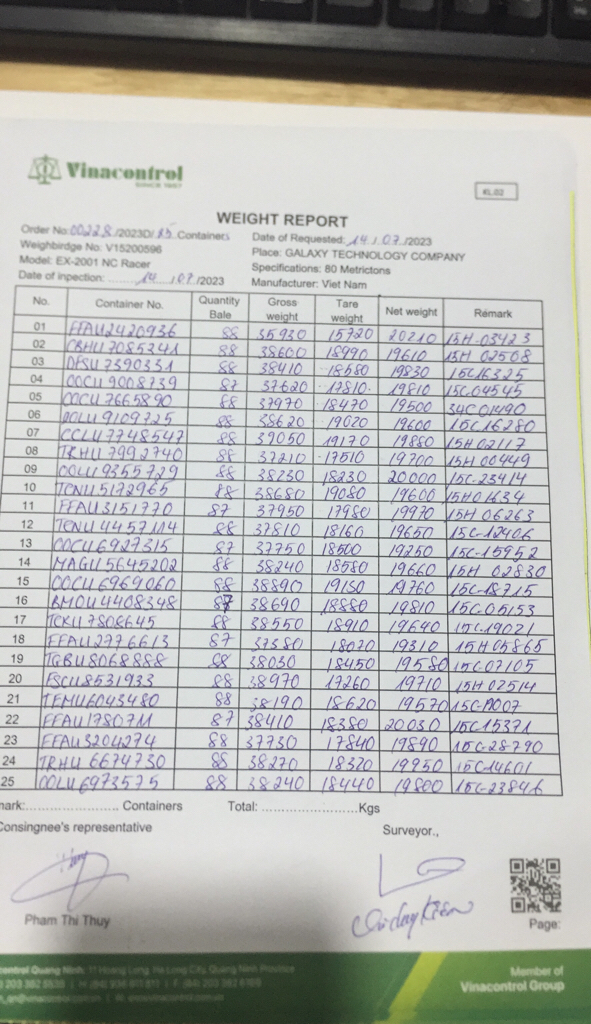 Vinacontrol
SINCE 1957
KL.02
WEIGHT REPORT
Order No: 00228/2023D/ 85 Containers Date of Requested: 14 / 07 /2023
Weighbirdge No: V15200596 Place: GALAXY TECHNOLOGY COMPANY
Model: EX-2001 NC Racer Specifications: 80 Metrictons
Date of inpection: ........14 /07/2023 Manufacturer: Viet Nam
No. Container No. Quantity Bale Gross weight Tare weight Net weight Remark
01 FFAU2420936 88 35930 15720 20210 15H-03423
02 CBHU7085241 88 38600 18990 19610 15H 02508
03 DFSU7390331 88 38410 18580 19830 15C16325
04 OOCU9008739 87 37620 17810 19810 15C04545
05 COCU7665890 88 37970 18470 19500 34C01490
06 OOLU9109725 88 38620 19020 19600 15C16280
07 CCLU7748547 88 39050 19170 19880 15H02117
08 TRHU7992740 88 37210 17510 19700 15H00449
09 OOLU9355729 88 38230 18230 20000 15C-23414
10 TCNU5172965 88 38680 19080 19600 15H01634
11 FFAU3151770 87 37950 17980 19970 15H 06263
12 TCNU4457114 88 37810 18160 19650 15C-12406
13 OOCU6927315 87 37750 18500 19250 15C-15952
14 MAGU5645202 88 38240 18580 19660 15H 02830
15 OOCU6969060 88 38890 19130 19760 15C-18715
16 BMOU4408348 87 38690 18880 19810 15C-05153
17 TCKU7808645 88 38550 18910 19640 15C-19021
18 FFAU2776613 87 37380 18070 19310 15H05865
19 TGBU8068888 88 38030 18450 19580 15C07105
20 FSCU8531933 88 38970 17260 19710 15H02514
21 TEMU6043480 88 38190 18620 19570
22 FFAU1780711 87 38410 18380 20030 15C15371
23 FFAU3204274 88 37730 17840 19890 15C-28790
24 TRHU 6674730 88 38270 18320 19950 15C14601
25 OOLU6973575 88 38240 18440 19800 15C-23846
mark:........................ Containers Total: ........................Kgs
Consingnee's representative Surveyor.,
Pham Thi Thuy
Page:
Member of
Vinacontrol Group